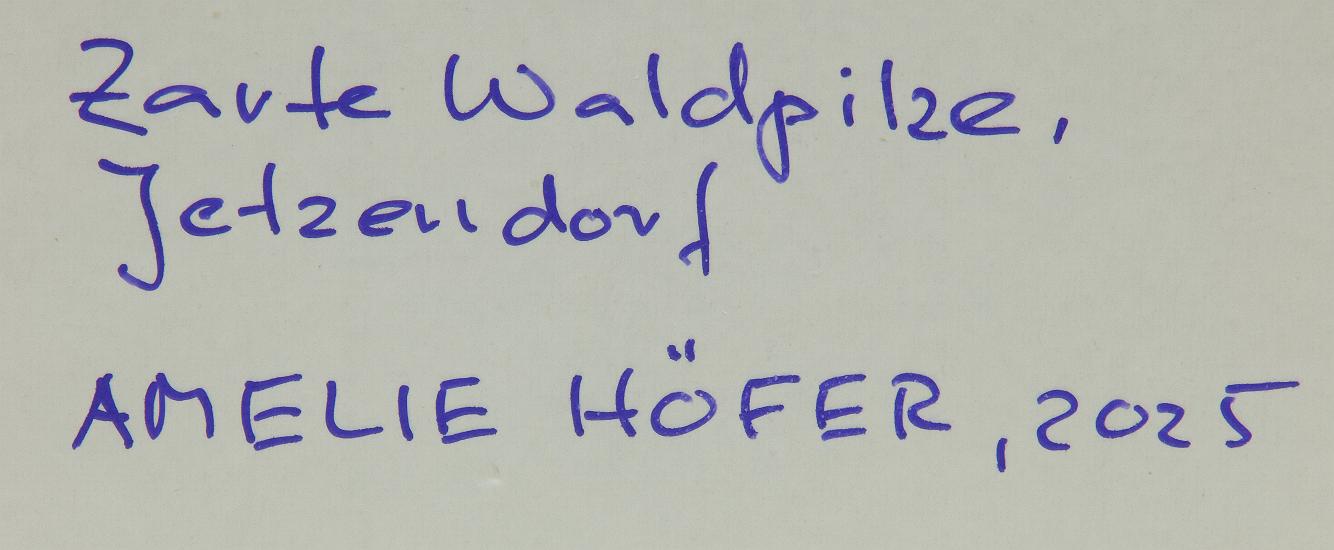 Zarte Waldpilze,
Jetzendorf
AMELIE HÖFER, 2025